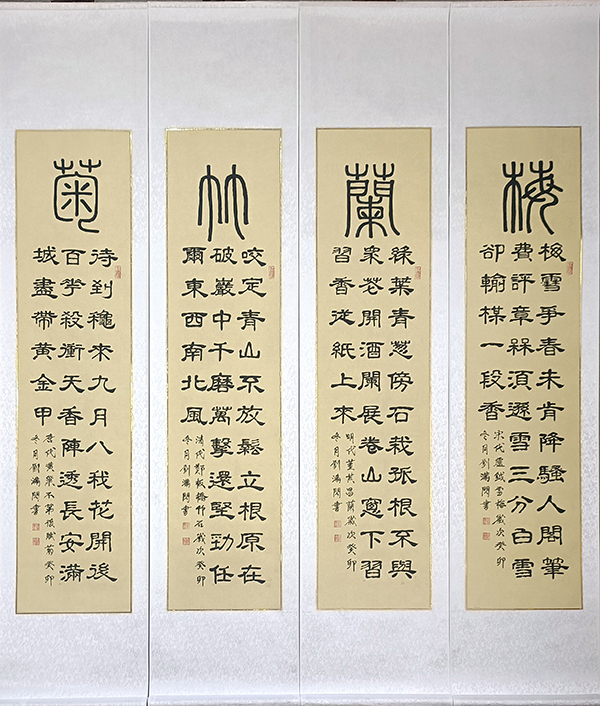 梅
梅雪爭春未肯降騷人閣筆
費評章槑須遜雪三分白雪
卻輸楳一段香
宋代盧鉞雪梅歲次癸卯
冬月劉鴻書
蘭
綠葉青蔥傍石栽孤根不與
衆花開酒闌展卷山窻下習
習香從紙上來
明代董其昌蘭歲次癸卯
冬月劉鴻書
竹
咬定青山不放鬆立根原在
破巖中千磨萬擊還堅勁任
爾東西南北風
清代鄭板橋竹石歲次癸卯
冬月劉鴻書
菊
待到穐來九月八我花開後
百花殺衝天香陣透長安滿
城盡帶黃金甲
唐代黃巢不第後賦菊癸卯
冬月劉鴻書